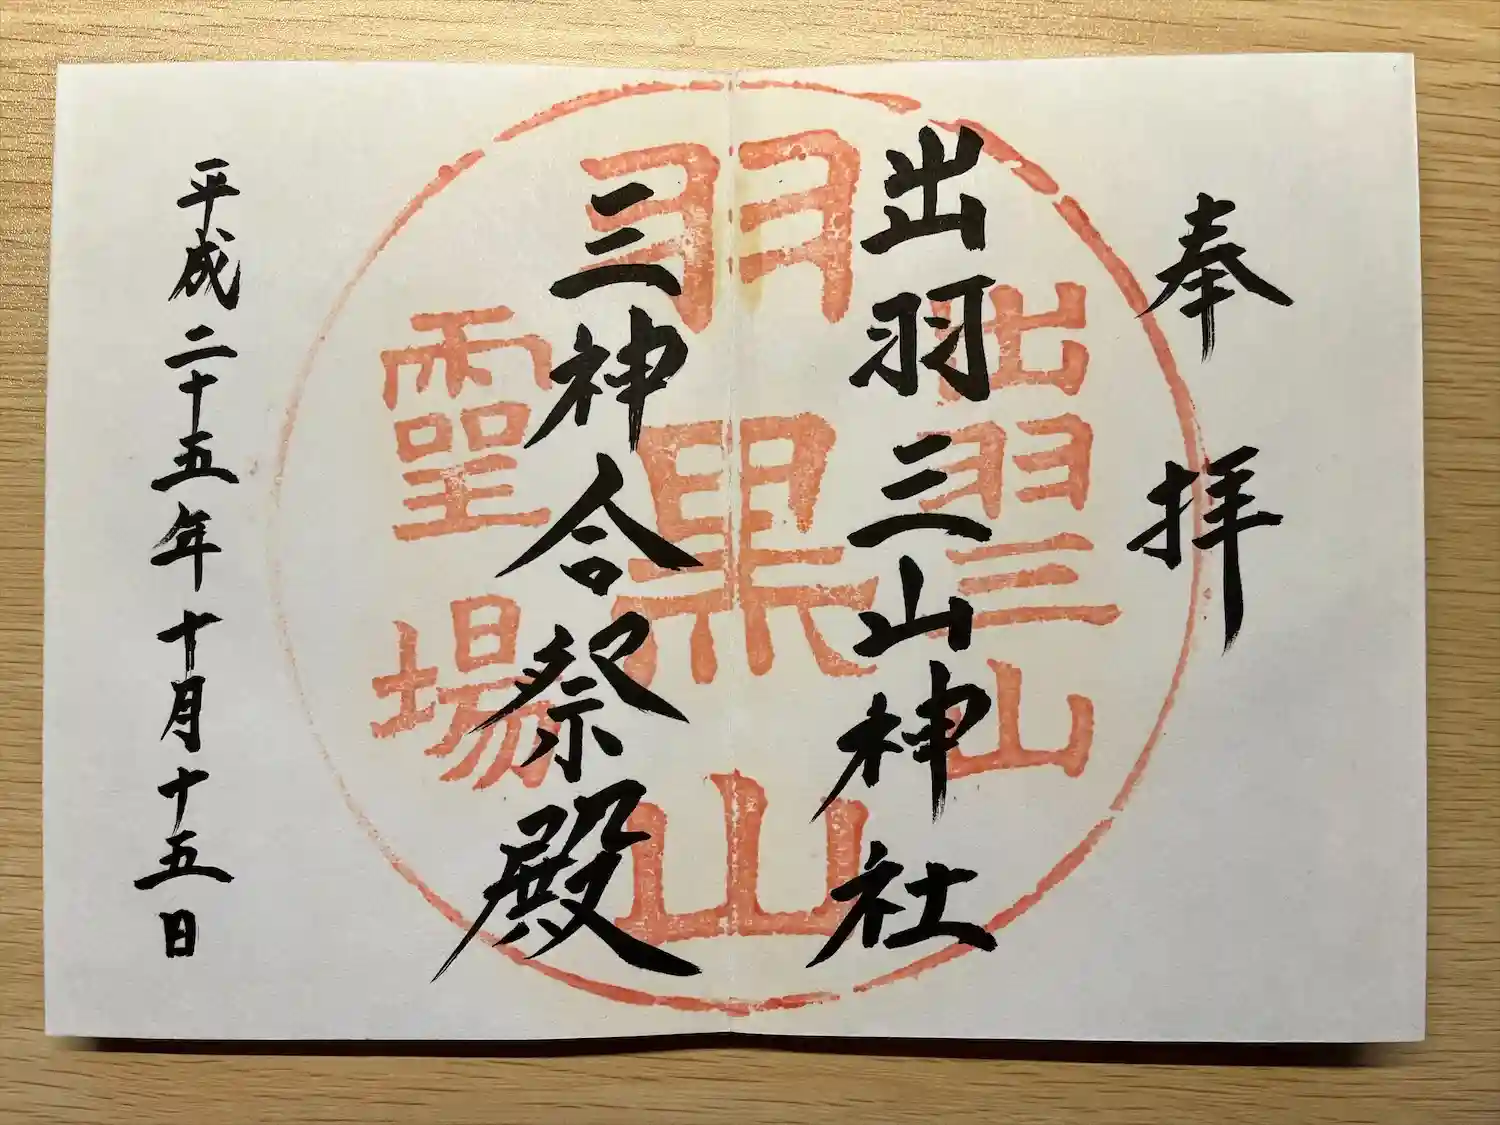 奉拝
出羽三山神社
三神合祭殿
平成二十五年十月十五日
出羽三山
羽黒山
霊場